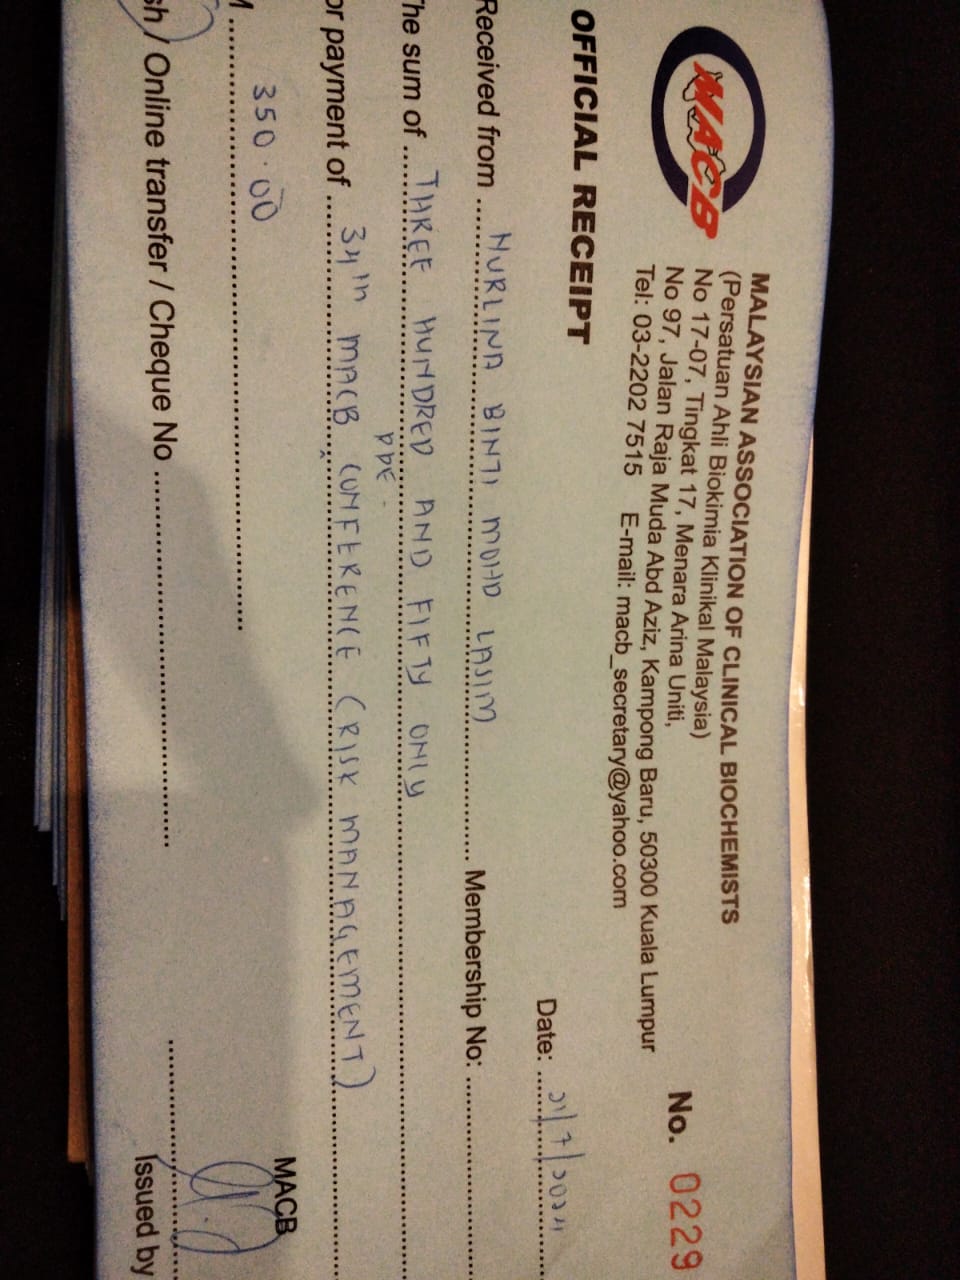 MACB
MALAYSIAN ASSOCIATION OF CLINICAL BIOCHEMISTS
(Persatuan Ahli Biokimia Klinikal Malaysia)
No 17-07, Tingkat 17, Menara Arina Uniti,
No 97, Jalan Raja Muda Abd Aziz, Kampong Baru, 50300 Kuala Lumpur
Tel: 03-2202 7515 E-mail: macb_secretary@yahoo.com
No. 0229
OFFICIAL RECEIPT
Date:
Received from NURLINA BINTI MOHD LASIM Membership No:
The sum of THREE HUNDRED AND FIFTY ONLY
PPE.
or payment of 34th MACB ^ CONFERENCE (RISK MANAGEMENT)
M 350.00
MACB
sh / Online transfer / Cheque No
Issued by